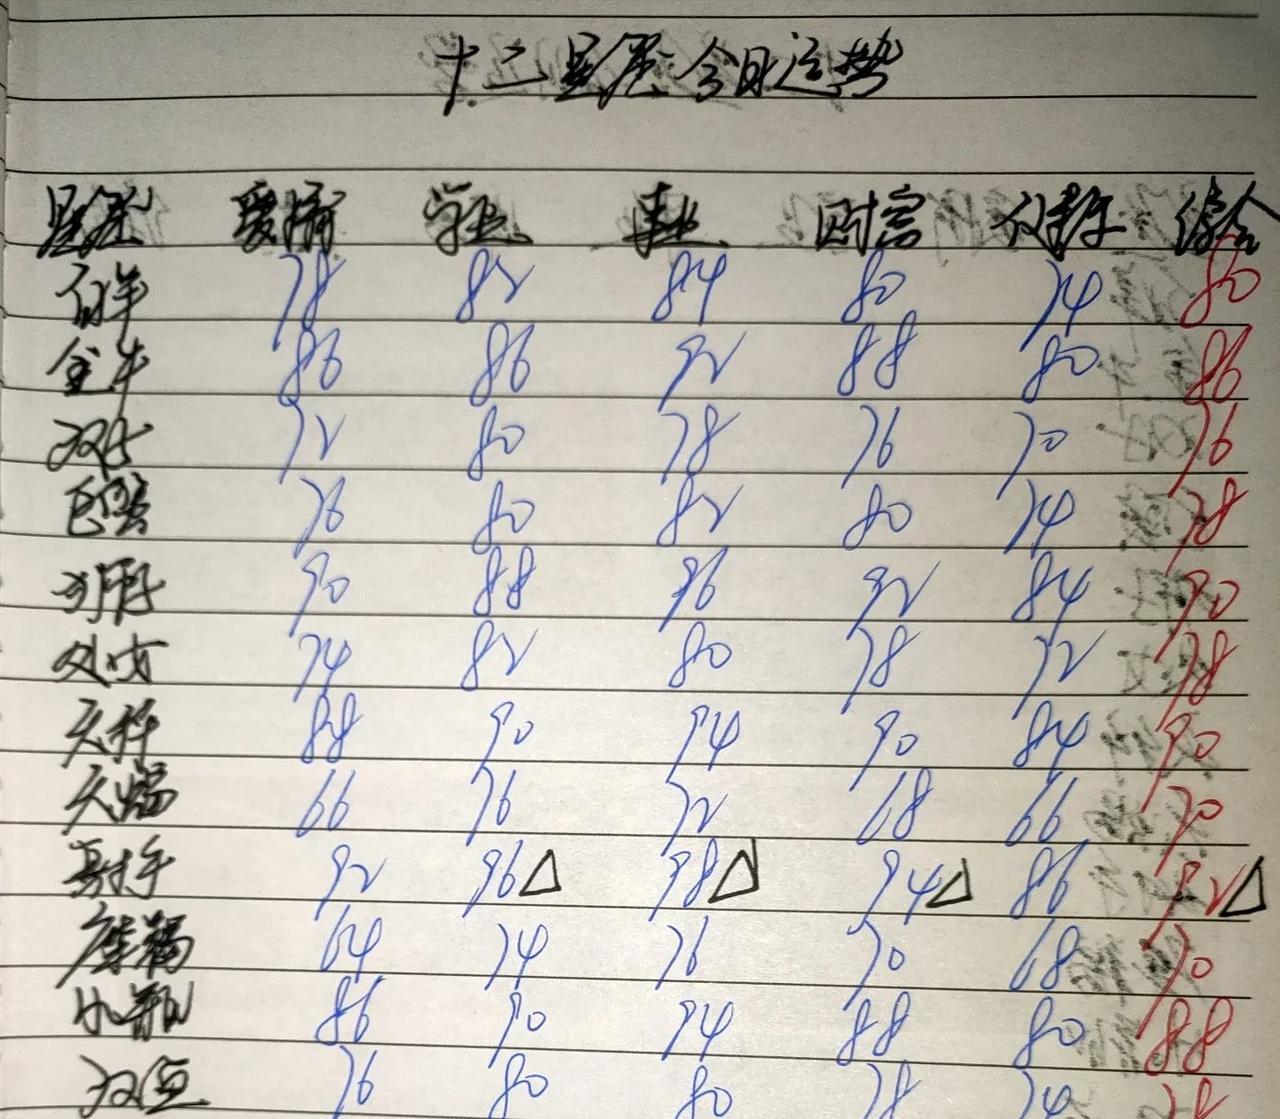 十二星座今日运势
星座 爱情 学业 事业 财富 健康 综合
白羊 78 82 84 80 74 80
金牛 86 86 92 88 80 86
双子 72 80 78 76 70 76
巨蟹 76 80 82 80 74 78
狮子 90 88 96 92 84 90
处女 74 82 80 78 72 78
天秤 88 90 94 90 84 90
天蝎 66 76 72 68 66 70
射手 92 96△ 98△ 94△ 86 92△
摩羯 64 74 76 70 68 70
水瓶 86 90 94 88 80 88
双鱼 76 80 80 78 74 78